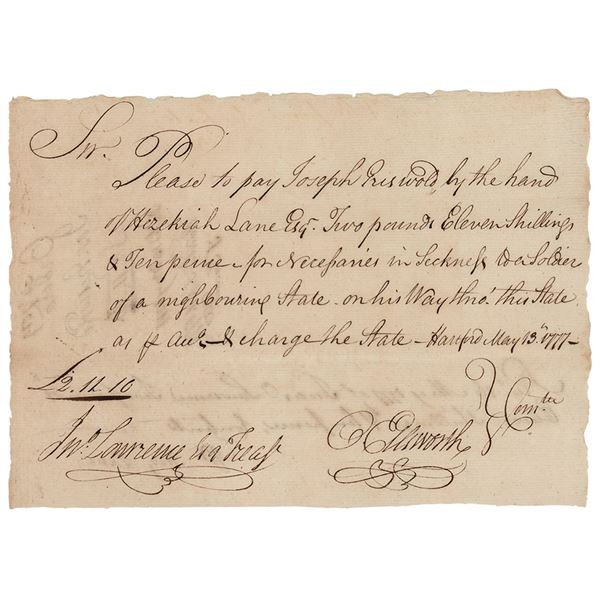 Sir.
Please to pay Joseph Griswold, by the hand
of Hezekiah Lane Esqr. Two pounds Eleven Shillings
& Ten pence - for Necessaries in Sickness &c a Soldier
of a nighbouring State - on his Way thro' this State
as pr Acco. - & charge the State - Hartford May 13th. 1777 -
£2.11.10
Jno. Lawrence Esqr Treasr
O Ellsworth } Comtee